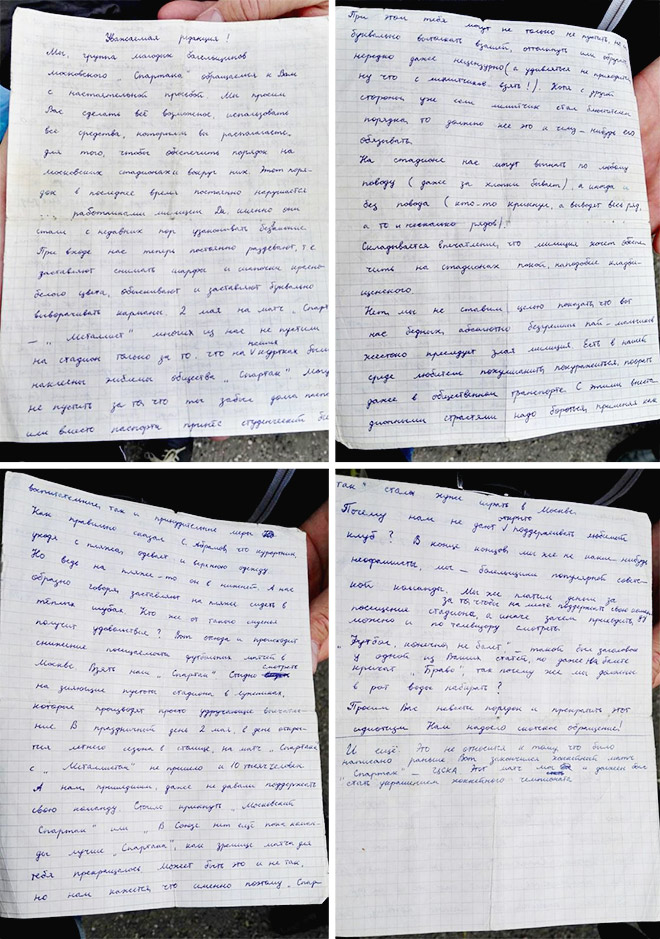 Уважаемая редакция!
Мы, группа молодых болельщиков
московского „Спартака" обращаемся к Вам
с настоятельной просьбой Мы просим
Вас сделать всё возможное, использовать
все средства, которыми вы располагаете,
для того, чтобы обеспечить порядок на
московских стадионах и вокруг них. Этот поря-
док в последнее время постоянно нарушается
... работниками милиции Да, именно они
стали с недавних пор устанавливать беззаконие.
При входе нас теперь постоянно раздевают, т е
заставляют снимать шарфы и шапочки красно-
белого цвета, обыскивают и заставляют буквально
выворачивать карманы. 2 мая на матч „Спартак"
– „Металлист" многих из нас не пустили
на стадион только за то, что на майках и куртках были
наклеены эмблемы общества „Спартак" Могут
не пустить за то, что ты забыл дома паспорт
или вместо паспорта принёс студенческий билет
При этом тебя могут не только не пустить, но и
буквально вытолкать взашей, оттолкнуть или обругать
нередко даже нецензурно (а удивляться не приходится
ну что с милитчиков взять!). Хотя с другой
стороны уже сам милитчик стал блюстителем
порядка, то должно же это к чему-нибудь его
обязывать.
На стадионе нас могут выгнать по любому
поводу (даже за хлопки бывает), а иногда и
без повода (кто-то крикнул, а выведет весь ряд,
а то и несколько рядов).
Складывается впечатление, что милиция хочет обеспе-
чить на стадионах покой, наподобие кладби-
щенского
Нет, мы не ставим целью показать, что вот
нас бедных, абсолютно безгрешных пай-мальчиков
жестоко преследует злая милиция Есть в нашей
среде любители похулиганить, покуражиться, поорать
даже в общественном транспорте. С этими внеста-
дионными страстями надо бороться, применяя как
воспитательные, так и принудительные меры
Как правильно сказал С. Абрамов, что курортник,
уходя с пляжа, одевает и верхнюю одежду.
Но ведь на пляже-то он в нижней. А нас
образно говоря, заставляют на пляже сидеть в
тёплых шубах Кто же от такого сидения
получит удовольствие? Вот отсюда и происходит
снижение посещаемости футбольных матчей в
Москве Взять наш „Спартак" Стыдно смотреть
на зияющие пустоты стадиона в Лужниках,
которые производят просто удручающее впечатле-
ние. В праздничный день 2 мая, в день откры-
тия летнего сезона в столице, на матч „Спартак"
с „Металлистом" не пришло и 10 тысяч человек
А нам, пришедшим, даже не давали поддержать
свою команду. Стоило крикнуть „Московский
Спартак" или „В Союзе нет ещё пока коман-
ды лучше „Спартака", как зрелище матча для
тебя прекращалось Может быть это и не так,
но нам кажется, что именно поэтому „Спар-
так" стал хуже играть в Москве.
Почему нам не дают открыто поддерживать любимый
клуб? В конце концов, мы же не какие-нибудь
неофашисты, мы – болельщики популярной советс-
кой команды. Мы же платим деньги за
посещение стадиона, за то, чтобы на месте поддержать свою команду
а иначе зачем приходить, ведь
можно и по телевизору смотреть.
„Футбол, конечно, не балет" – таков был заголовок
у одной из Ваших статей, но даже на балете
кричат „Браво", так почему же мы должны
в рот воды набирать?
Просим Вас навести порядок и прекратить этот
идиотизм Нам надоело скотское обращение!
И ещё Это не относится к тому, что было
написано раньше Вот закончился хоккейный матч
„Спартак" – ЦСКА Этот матч мог и должен был
стать украшением хоккейного чемпионата